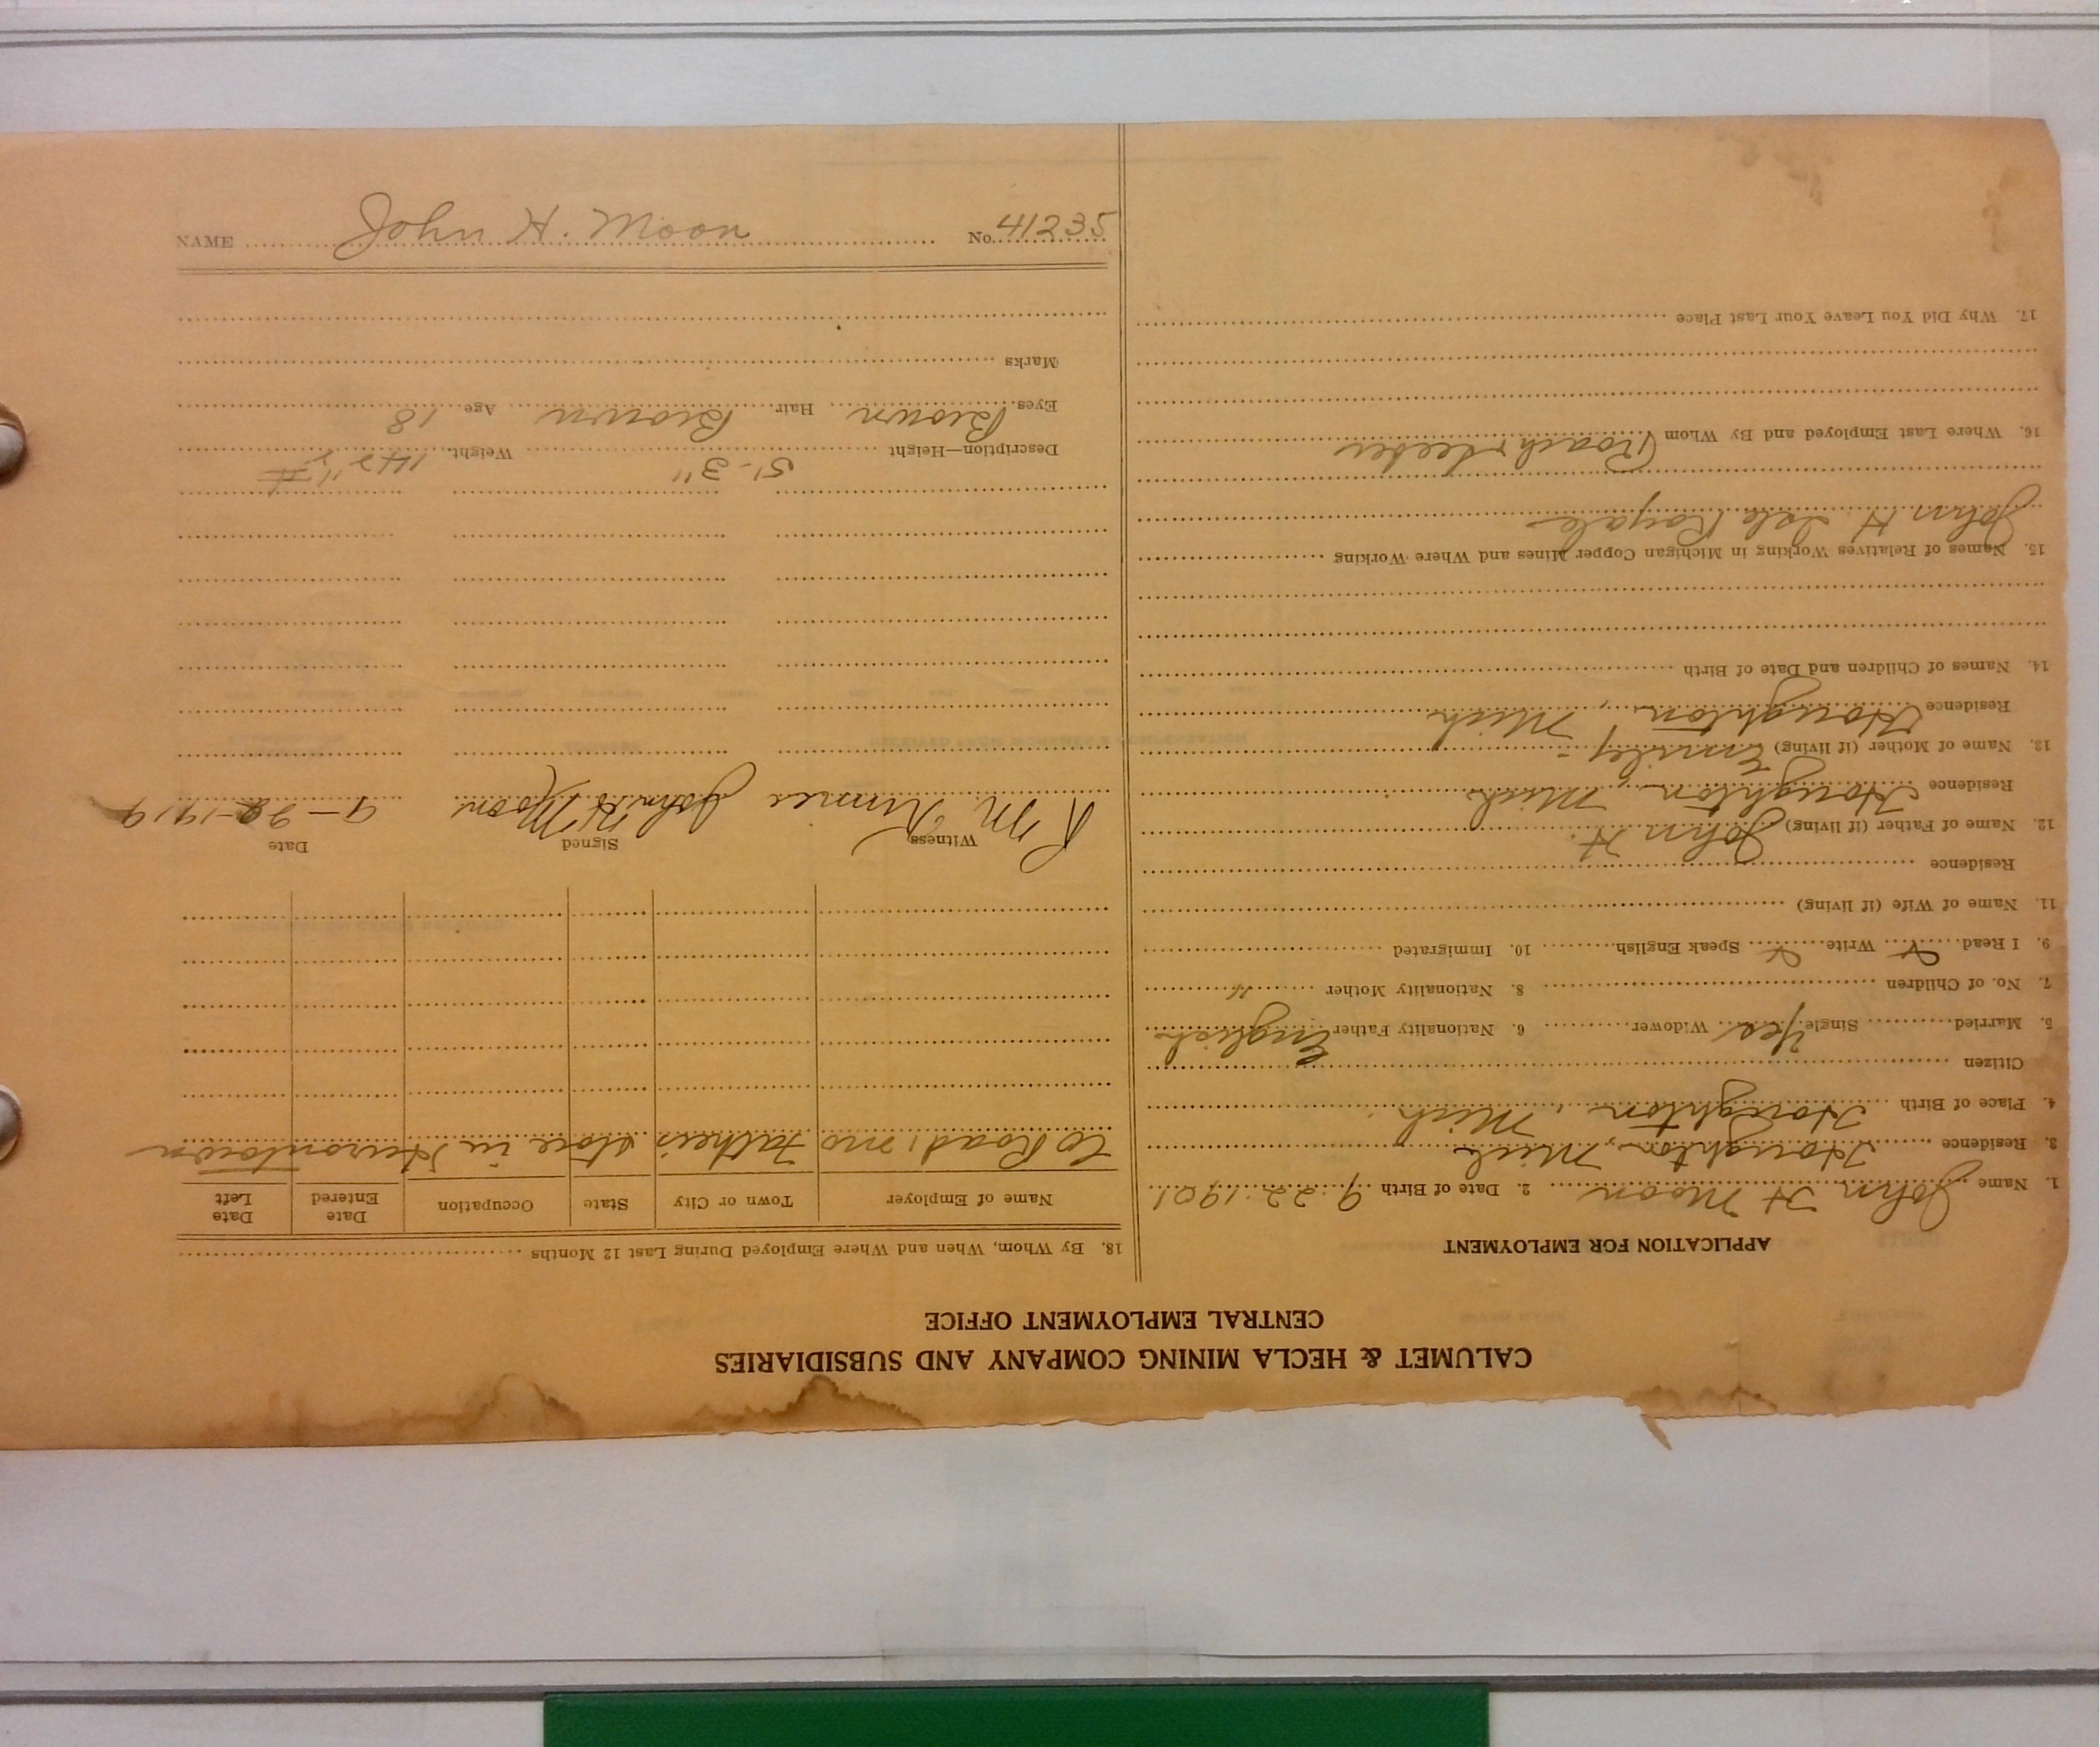 CALUMET & HECLA MINING COMPANY AND SUBSIDIARIES
CENTRAL EMPLOYMENT OFFICE
APPLICATION FOR EMPLOYMENT
1. Name John H Moon 2. Date of Birth 9-22-1901
3. Residence Houghton, Mich
4. Place of Birth Houghton, Mich.
Citizen
5. Married Single Yes Widower 6. Nationality Father English
7. No. of Children 8. Nationality Mother "
9. I Read Write Speak English 10. Immigrated
11. Name of Wife (if living)
Residence
12. Name of Father (if living) John H.
Residence Houghton, Mich
13. Name of Mother (if living) Emily
Residence Houghton, Mich
14. Names of Children and Date of Birth
15. Names of Relatives Working in Michigan Copper Mines and Where Working
John H Isle Royale
16. Where Last Employed and By Whom Roach & Seeber
17. Why Did You Leave Your Last Place
18. By Whom, When and Where Employed During Last 12 Months
Name of Employer Town or City State Occupation Date Entered Date Left
mo Fathers store in Hurontown
Witness Signed Date
R M John H Moon 9-22-1919
Description—Height 5'-3" Weight 142 1/2 #
Eyes Brown Hair Brown Age 18
Marks
NAME John H. Moon No. 41235